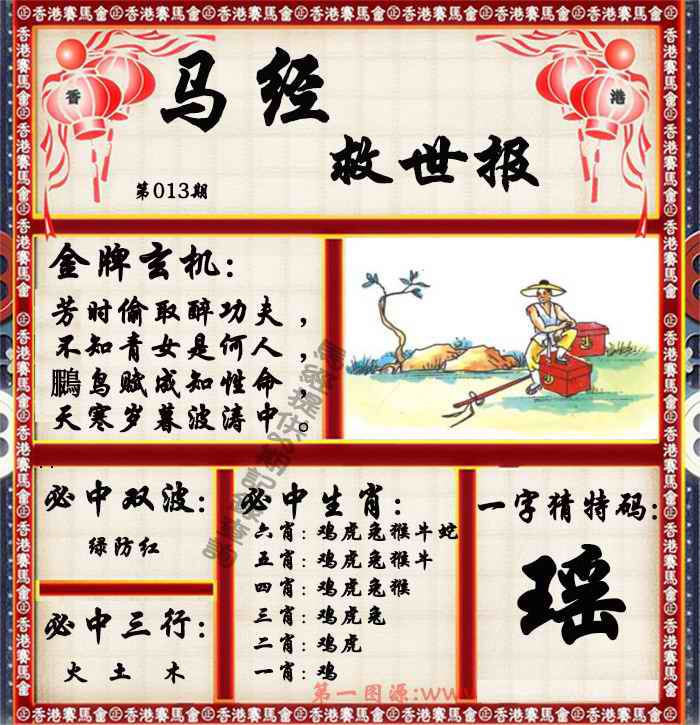 香港賽馬會
香 港
马经
救世报
第013期
金牌玄机:
芳时偷取醉功夫,
不知青女是何人,
鵬鸟赋成知性命,
天寒岁暮波涛中。
必中双波:
绿防红
必中三行:
火 土 木
必中生肖:
六肖:鸡虎兔猴牛蛇
五肖:鸡虎兔猴牛
四肖:鸡虎兔猴
三肖:鸡虎兔
二肖:鸡虎
一肖:鸡
一字猜特码:
瑶
第一图源:www